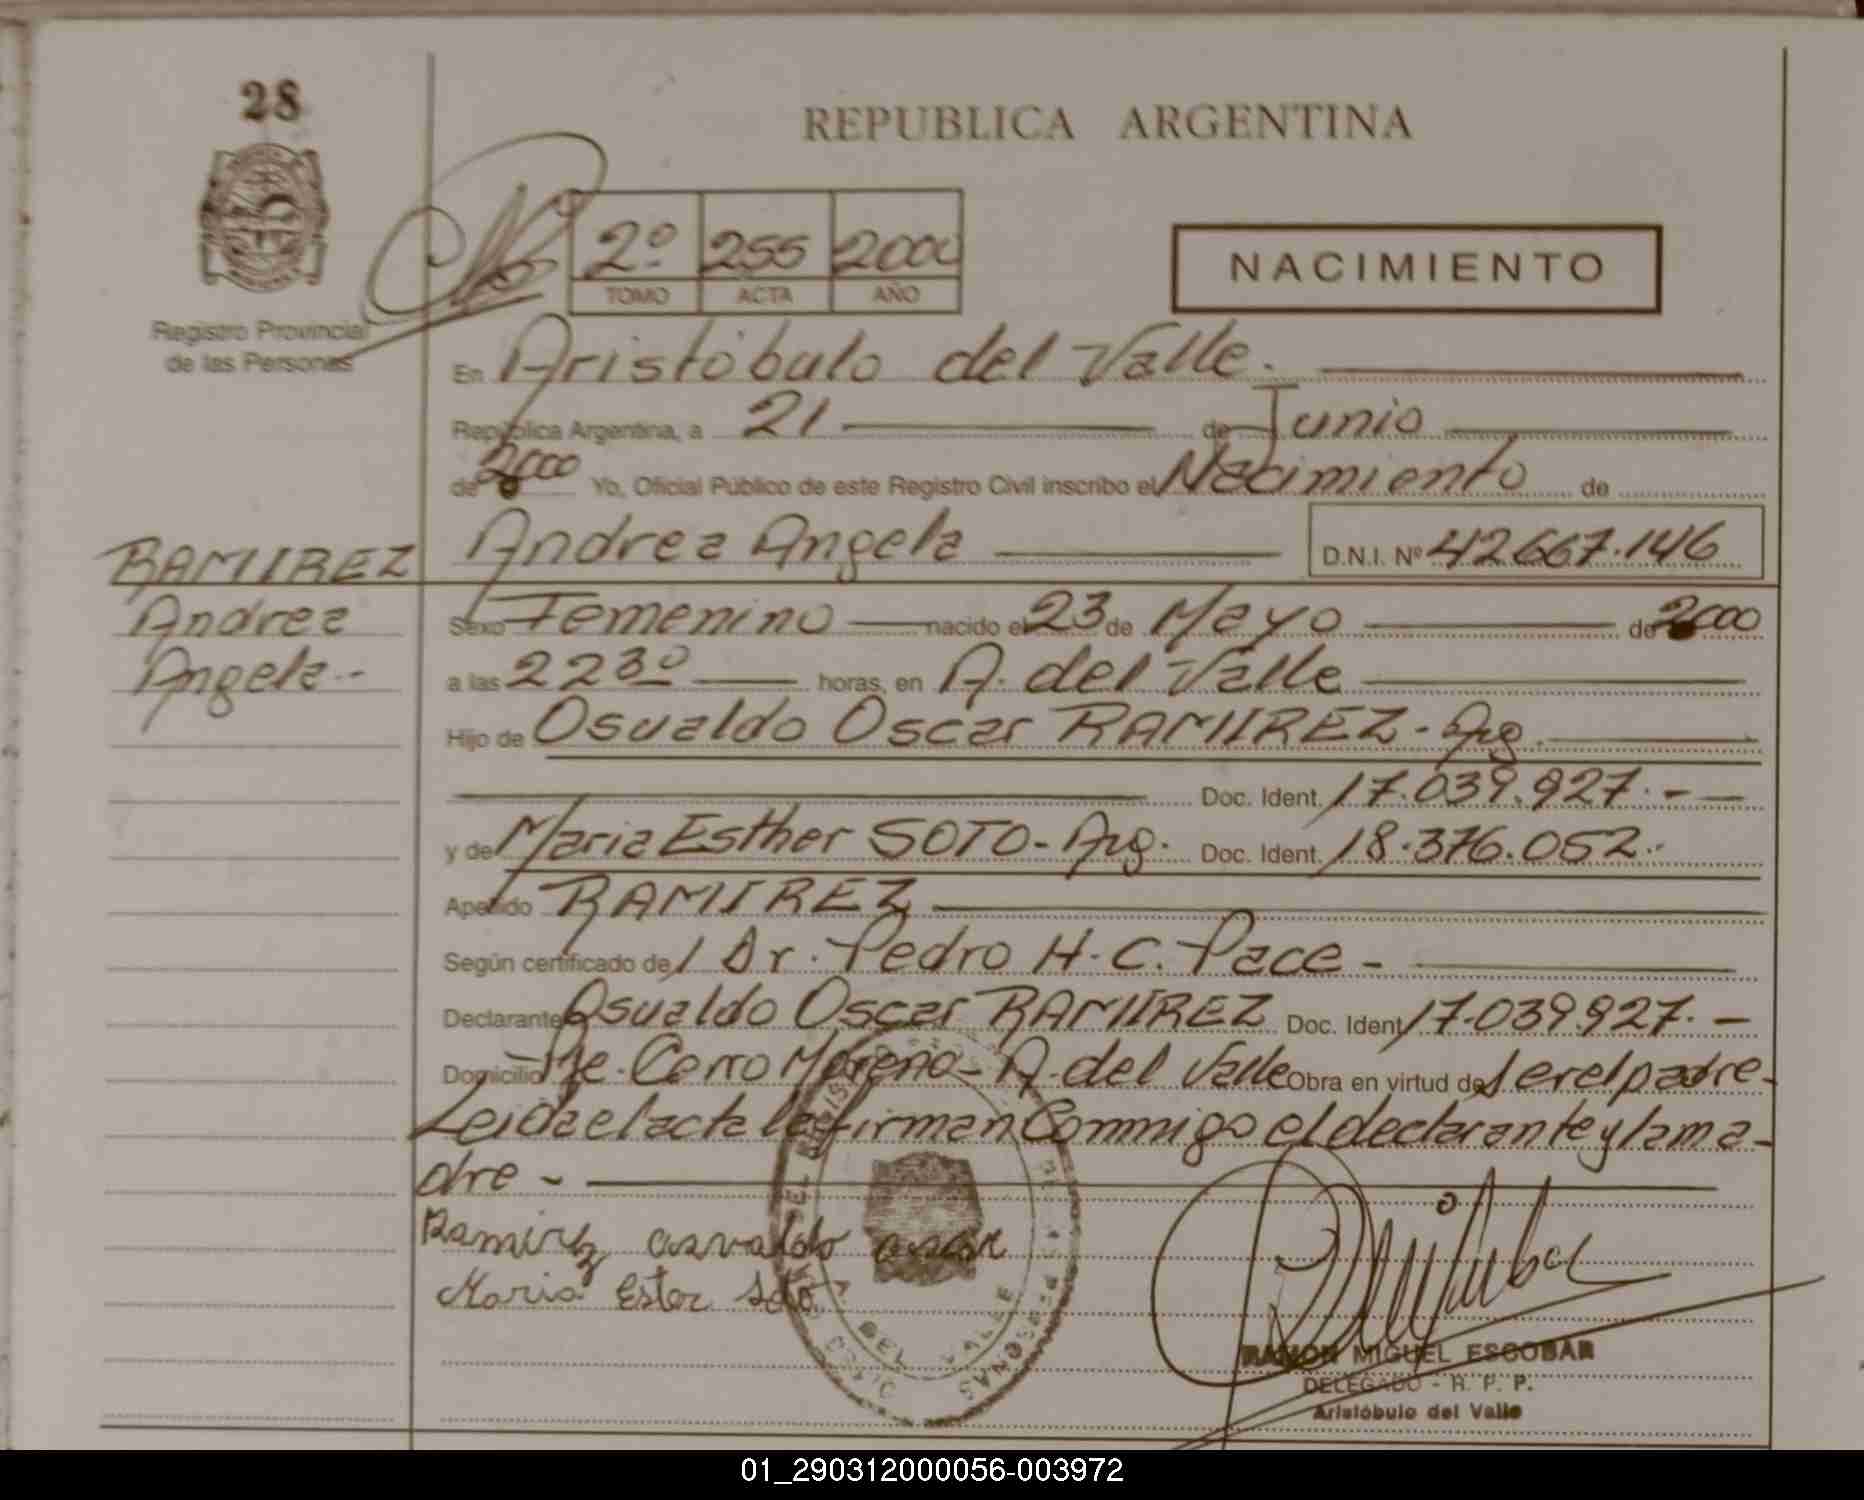 28
REPUBLICA ARGENTINA
2º 255 2000
TOMO ACTA AÑO
NACIMIENTO
Registro Provincial
de las Personas
En Aristóbulo del Valle.
República Argentina, a 21 de Junio
de 2000 Yo, Oficial Público de este Registro Civil inscribo el Nacimiento de
RAMIREZ
Andrea
Angela.-
Andrea Angela D.N.I. Nº 42.667.146
Sexo Femenino nacido el 23 de Mayo de 2000
a las 22 30 horas, en A. del Valle
Hijo de Osvaldo Oscar RAMIREZ - Arg.
Doc. Ident. 17.039.927.-
y de Maria Esther SOTO - Arg. Doc. Ident. 18.376.052.-
Apellido RAMIREZ
Según certificado de / Dr. Pedro H. C. Pace -
Declarante Osvaldo Oscar RAMIREZ Doc. Ident. 17.039.927. -
Domicilio Pje. Cerro Moreno - A. del Valle Obra en virtud de ser el padre -
Leida el acta la firman Conmigo el declarante y la ma-
dre -
Ramirez osvaldo oscar
Maria Ester Soto
DEL VALLE
RAMON MIGUEL ESCOBAR
DELEGADO - R. P. P.
Aristóbulo del Valle
01_290312000056-003972